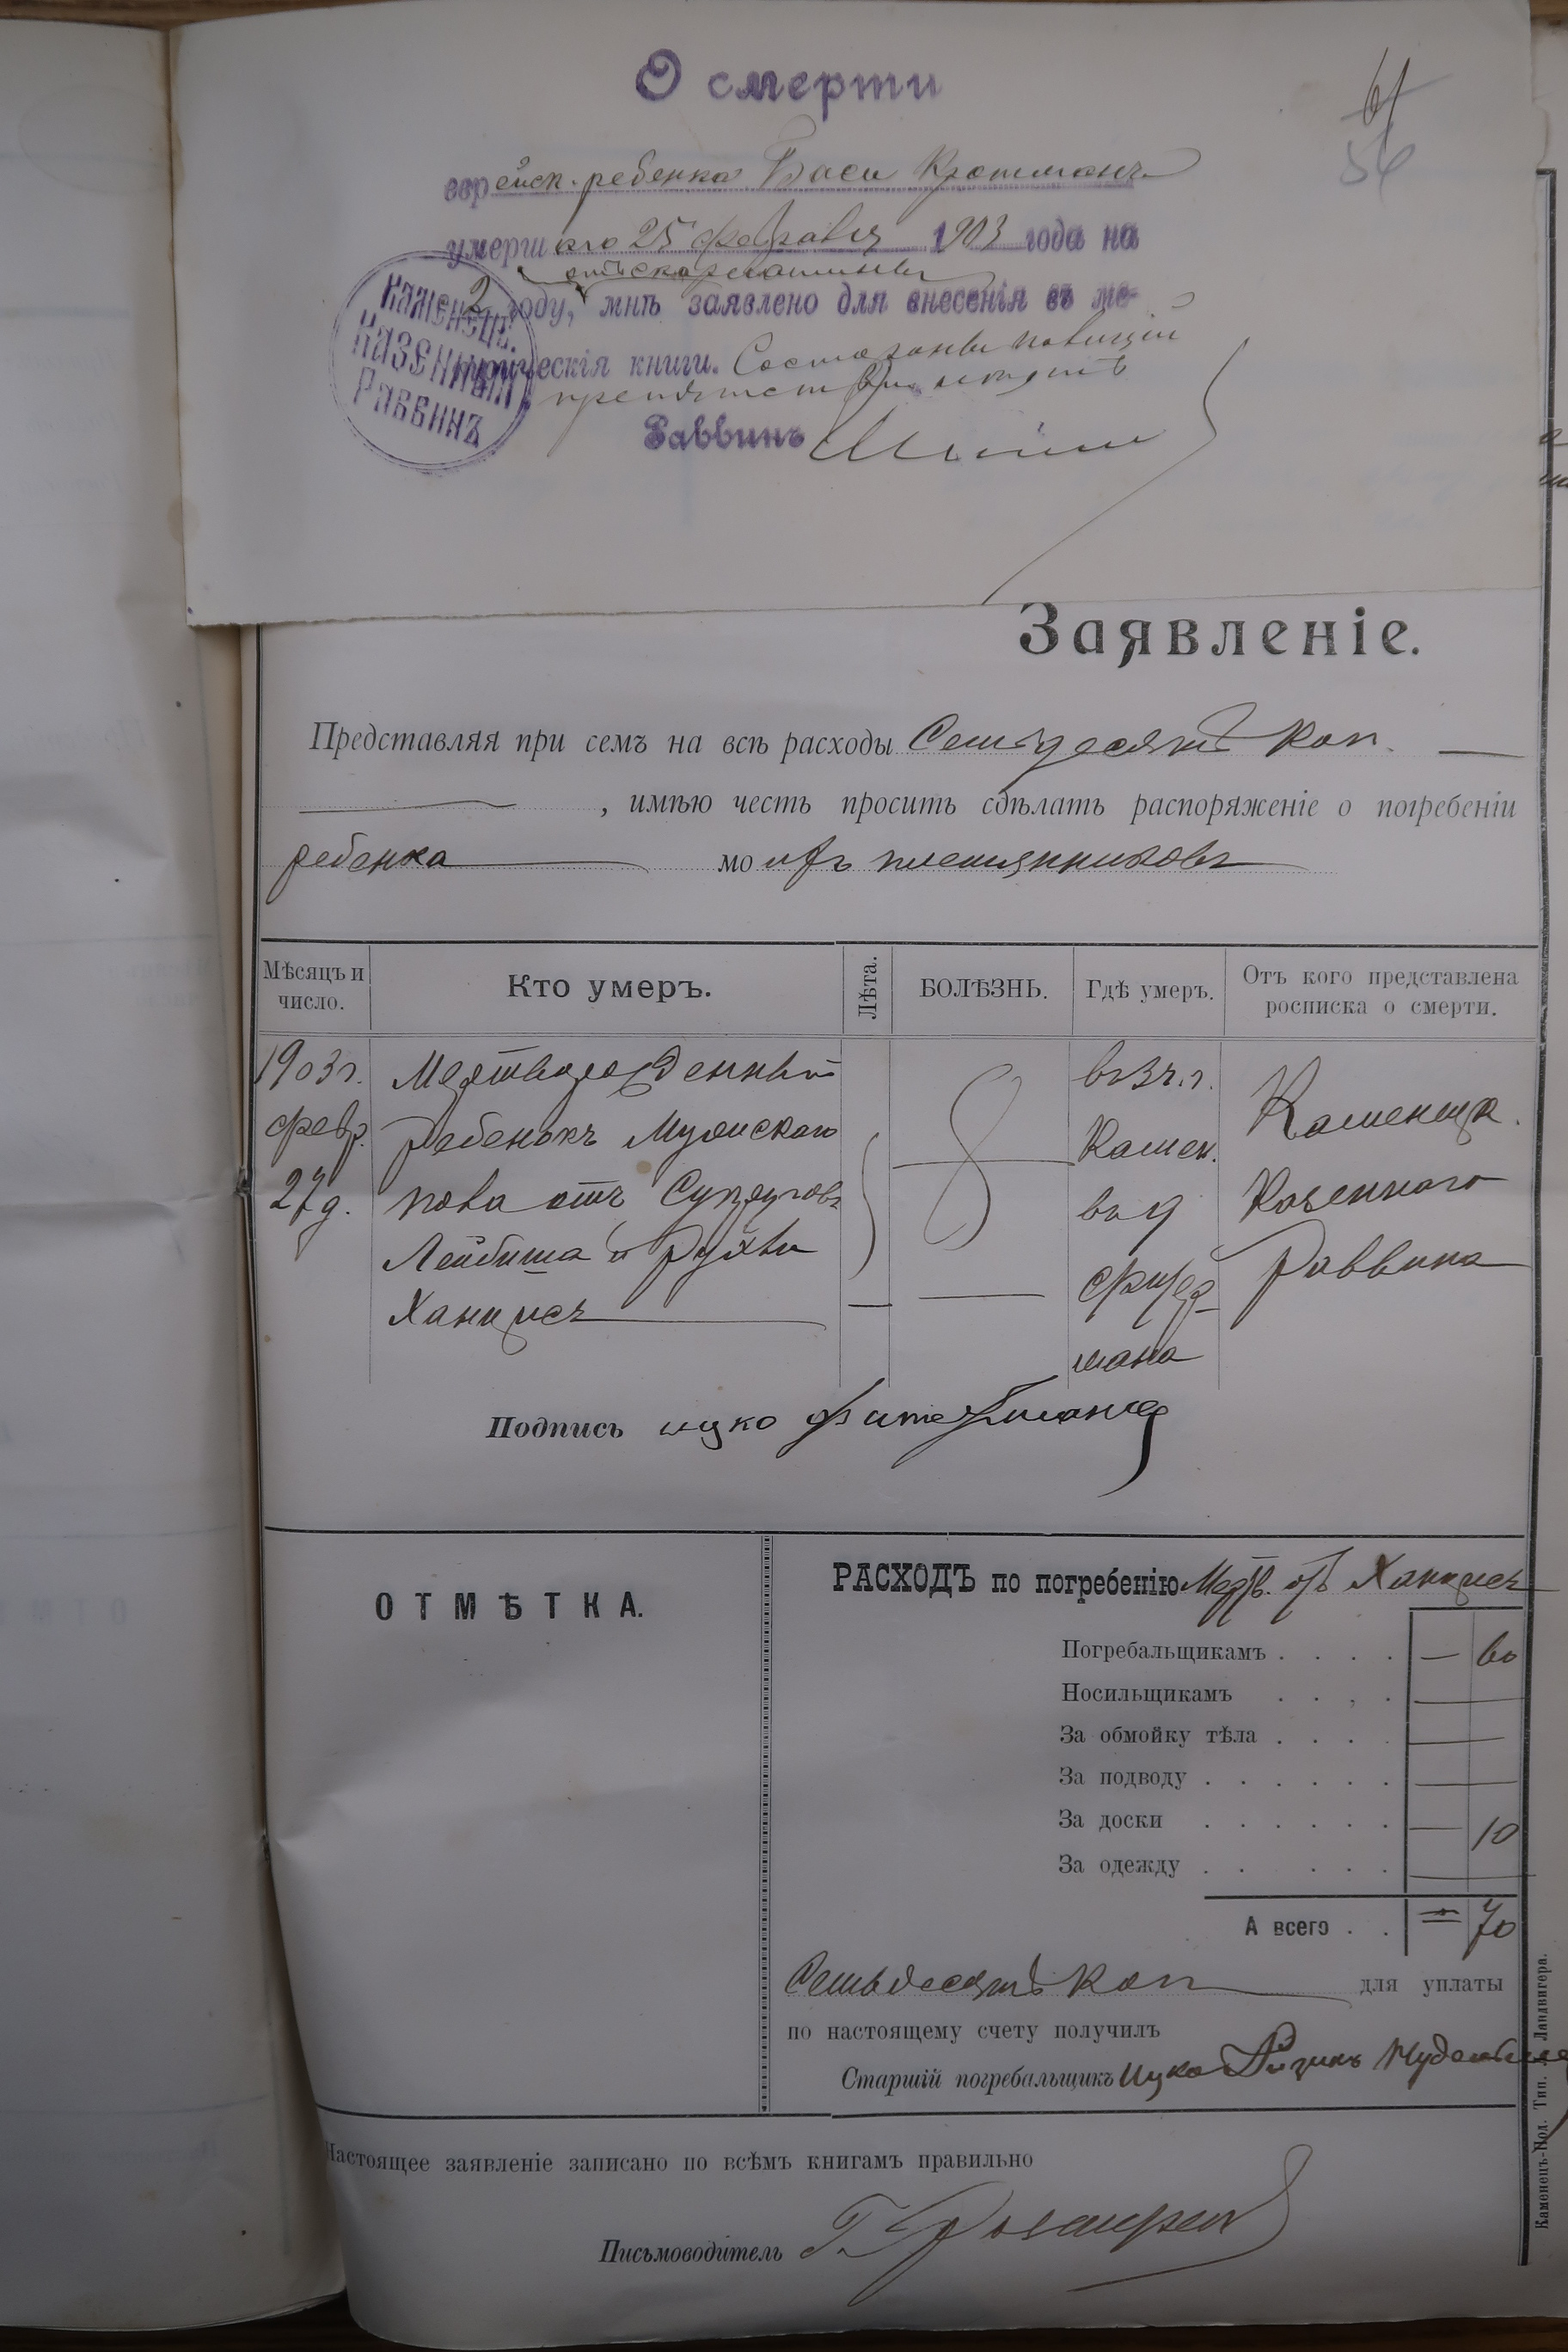 О смерти
61
56
еврейск. ребенка Баси Кротманъ
умершаго 25 февраля 1903 года на
отъ скарлатины
2 году, мнѣ заявлено для внесенія въ ме-
трическія книги. Со стороны полиціи
препятствій нѣтъ
Раввинъ
Каменецк.
Казенный
Раввинъ
Заявленіе.
Представляя при семъ на всѣ расходы Семьдесятъ коп.
, имѣю честь просить сдѣлать распоряженіе о погребеніи
ребенка моихъ племянниковъ
Мѣсяцъ и число.
Кто умеръ.
Лѣта.
БОЛѢЗНЬ.
Гдѣ умеръ.
Отъ кого представлена росписка о смерти.
1903 г.
февр.
27 д.
Мертворожденный
ребенокъ мужскаго
пола отъ супруговъ
Лейбиша и Рухли
Ханцисъ
въ 3 ч. г.
Камен.
въ д
Фитер-
мана
Каменецк.
Казеннаго
Раввина
Подпись ицко Фитерманъ
ОТМѢТКА.
РАСХОДЪ по погребенію Мертв. отъ Ханцисъ
Погребальщикамъ . . . . — 60
Носильщикамъ . . . . —
За обмойку тѣла . . . . —
За подводу . . . . . . —
За доски . . . . . . — 10
За одежду . . . . . . —
А всего . . = 70
Семьдесятъ коп для уплаты
по настоящему счету получилъ
Старшій погребальщикъ Ицко Айзикъ
Настоящее заявленіе записано по всѣмъ книгамъ правильно
Письмоводитель Г.
Каменецъ-Под. Тип. Ландвигера.